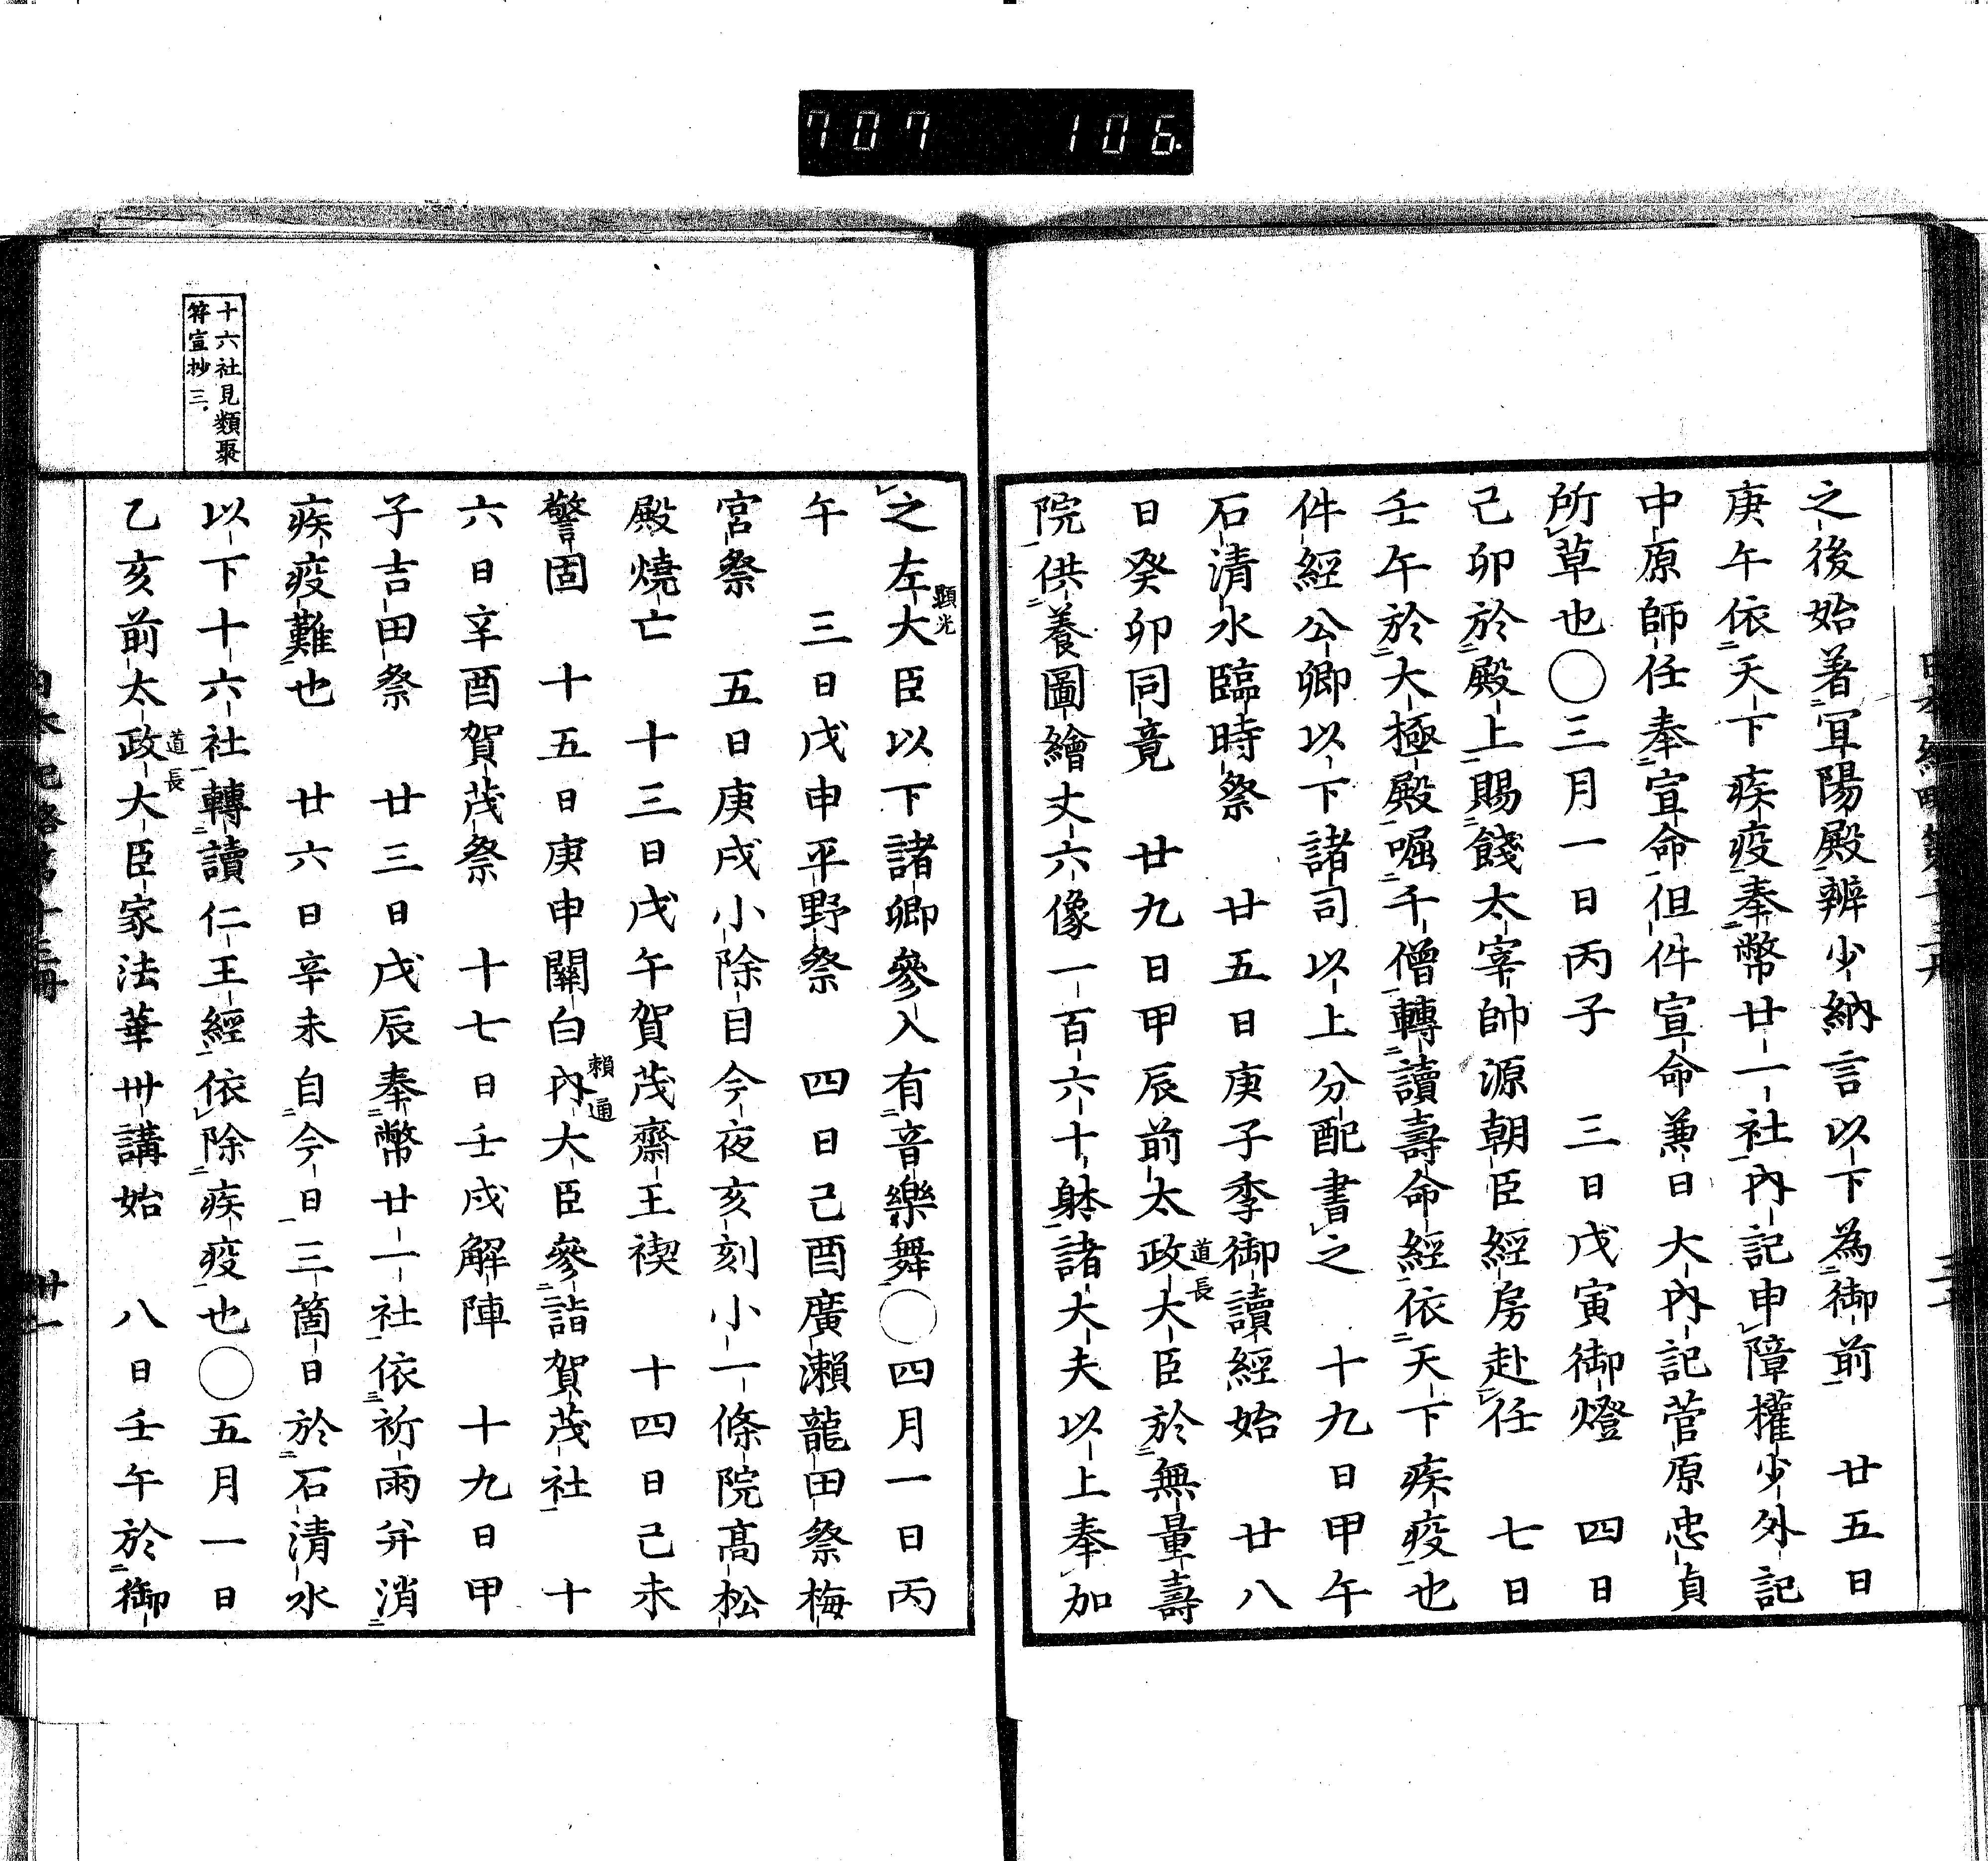 707 106.
之後始著宜陽殿辨少納言以下為御前 廿五日
庚午依天下疾疫奉幣廿一社內記申障權少外記
中原師任奉宣命但件宣命兼日大內記菅原忠貞
所草也〇三月一日丙子 三日戊寅御燈 四日
己卯於殿上賜餞太宰帥源朝臣經房赴任 七日
壬午於大極殿嘔千僧轉讀壽命經依天下疾疫也
件經公卿以下諸司以上分配書之 十九日甲午
石清水臨時祭 廿五日庚子季御讀經始 廿八
日癸卯同竟 廿九日甲辰前太政大臣於無量壽
道長
院供養圖繪丈六像一百六十躰諸大夫以上奉加
之左大臣以下諸卿參入有音樂舞〇四月一日丙
顯光
午 三日戊申平野祭 四日己酉廣瀨龍田祭梅
宮祭 五日庚戌小除目今夜亥刻小一條院高松
殿燒亡 十三日戊午賀茂齋王禊 十四日己未
警固 十五日庚申關白內大臣參詣賀茂社 十
賴通
六日辛酉賀茂祭 十七日壬戌解陣 十九日甲
子吉田祭 廿三日戊辰奉幣廿一社依祈雨并消
疾疫難也 廿六日辛未自今日三箇日於石清水
以下十六社轉讀仁王經依除疾疫也〇五月一日
乙亥前太政大臣家法華卅講始 八日壬午於御
道長
十六社見類聚
符宣抄三.